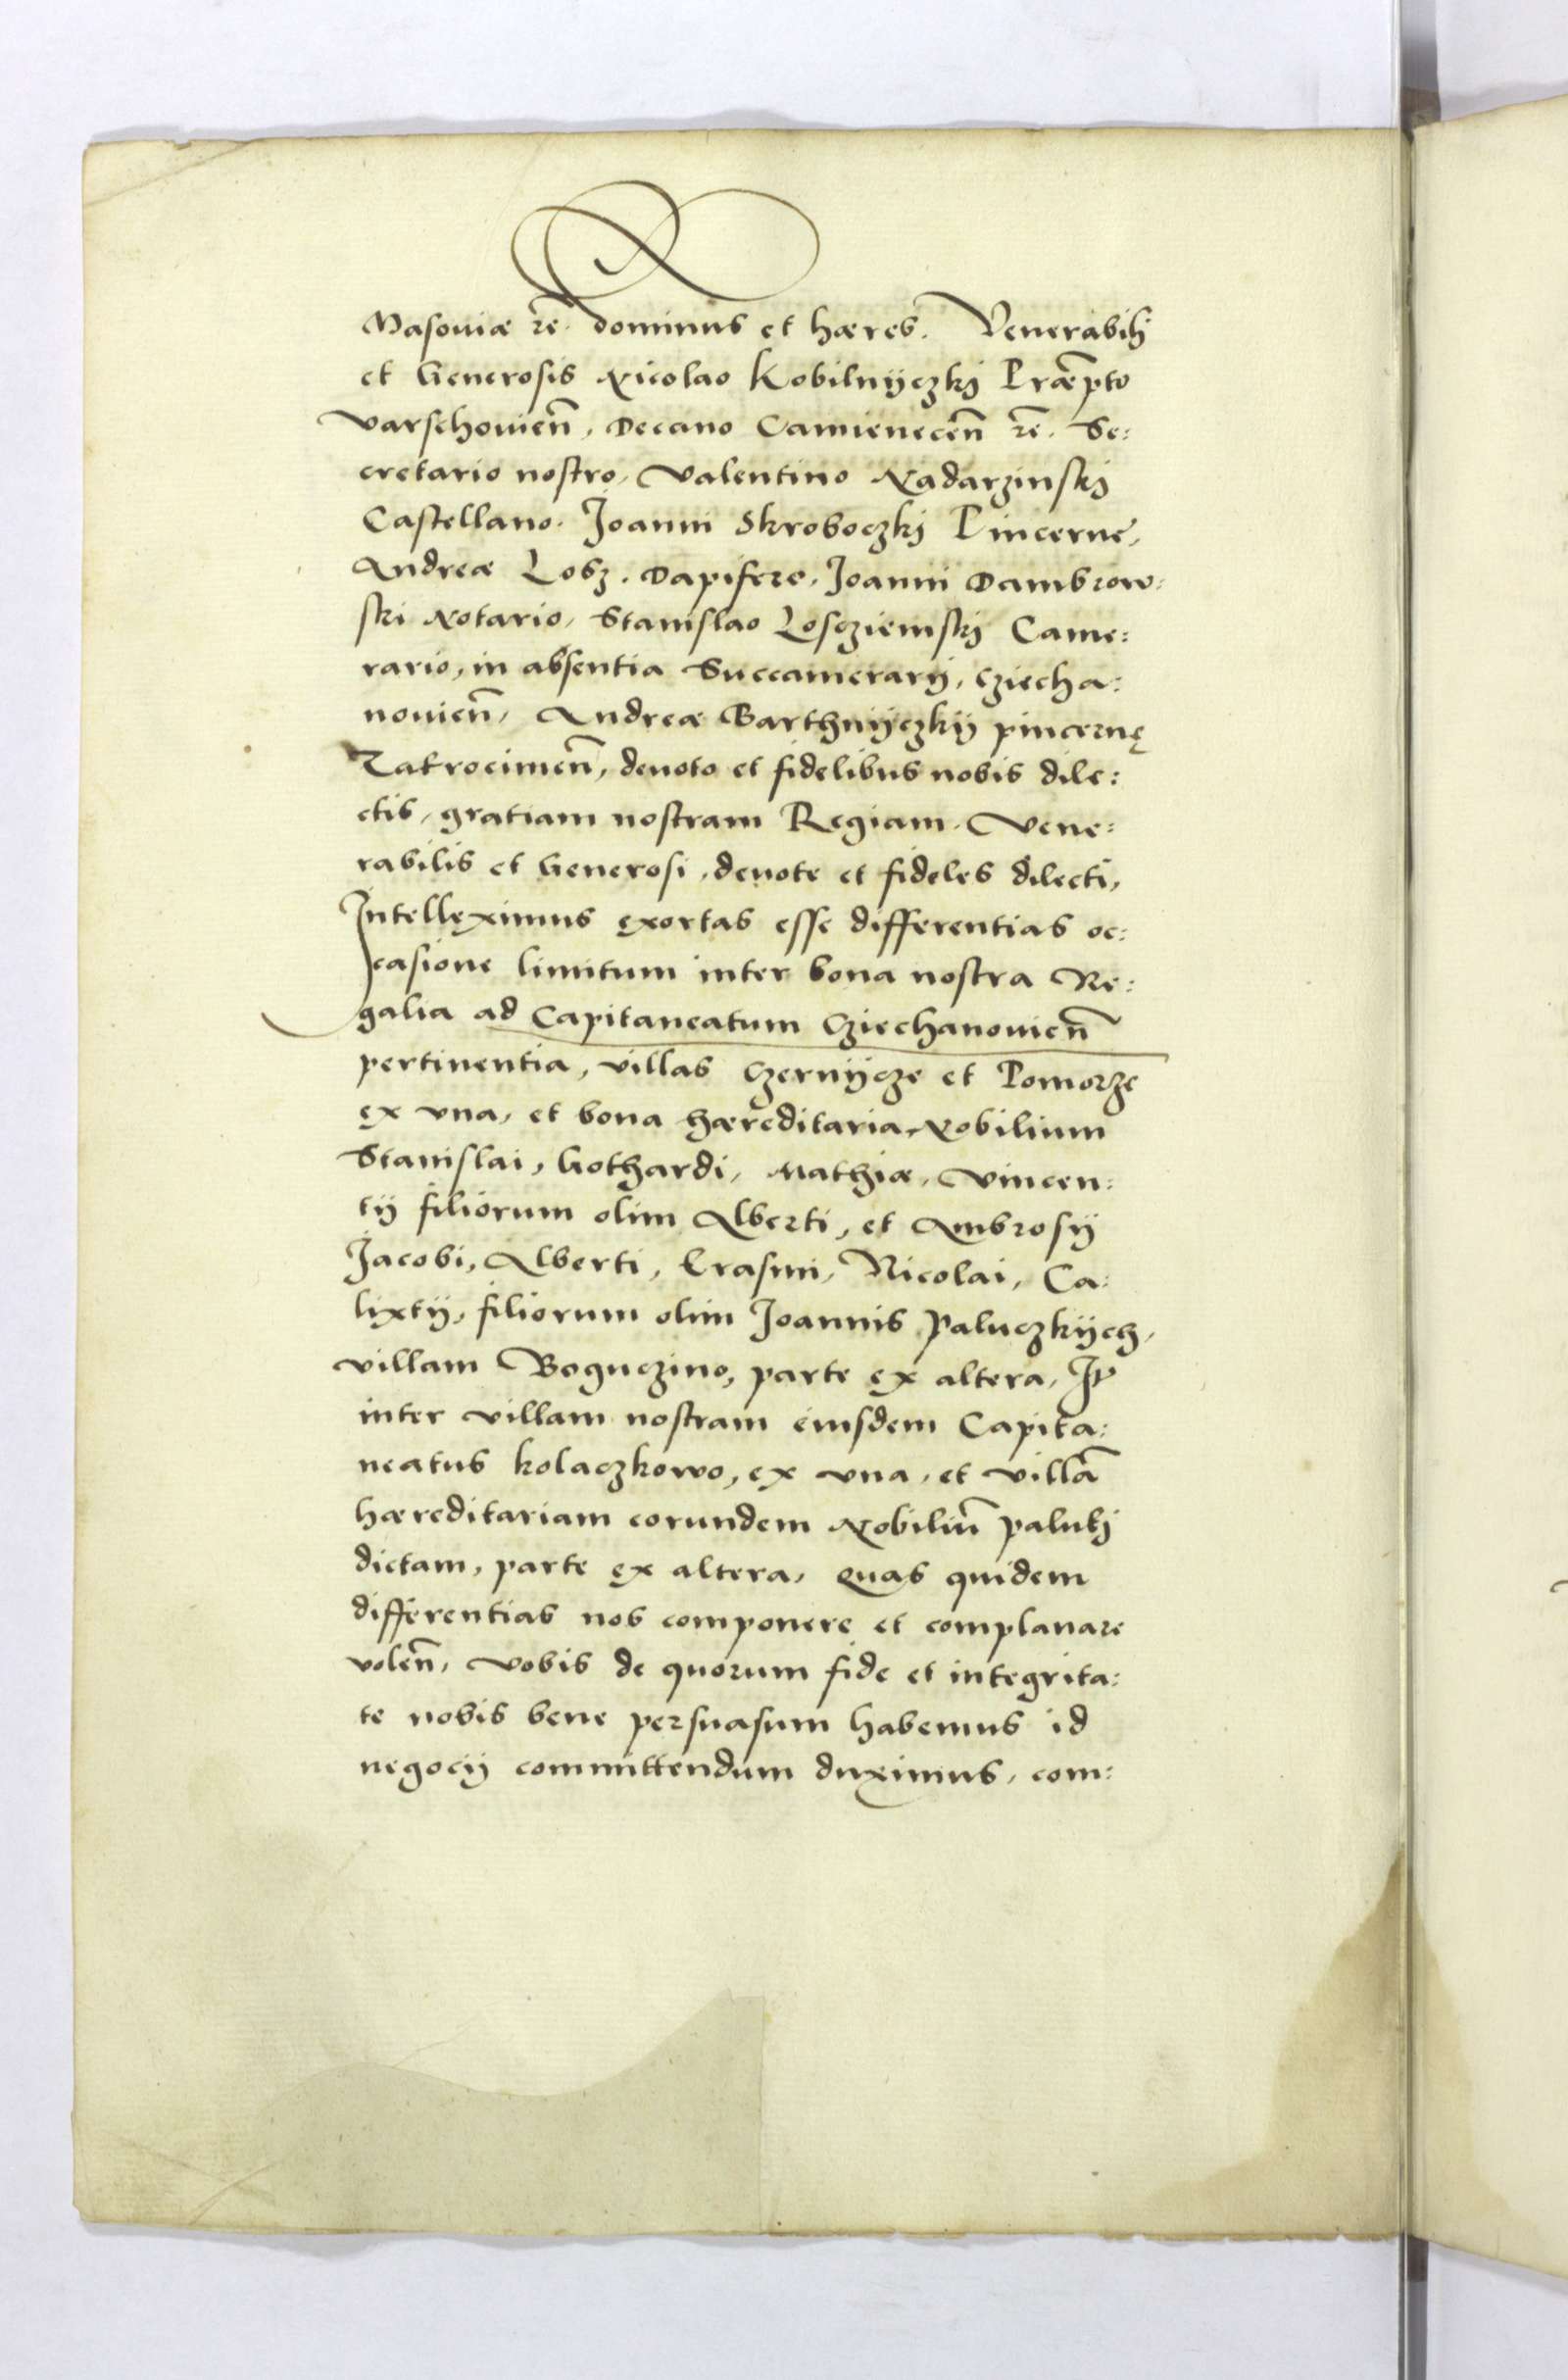 Masoviæ rē. dominus et hæres. Venerabili
et Generosis Nicolao Kobilnyczkj Præpto
Varschovien̄, Decano Camienecen̄ rē. Se:
cretario nostro, Valentino Nadarzinskj
Castellano. Joanni Skroboczkj Pincerne,
Andreæ Losz. Dapifero, Joanni Dambrow:
ski Notario, Stanislao Losczienskj Came:
rario, in absentia Succamerarij, Cziecha:
novien̄, Andreæ Barthnyczkij pincernę
Zakrocimen̄, devoto et fidelibus nobis dile:
ctis, gratiam nostram Regiam. Vene:
rabilis et Generosi, devote et fideles dilecti,
Intelleximus exortas esse differentias oc:
casione limitum inter bona nostra Re:
galia ad Capitaneatum Cziechanovien̄
pertinentia, villas Czernijcze et Pomorze
ex vna, et bona hæreditaria Nobilium
Stanislai, Gothardi, Mathiæ, Vincen:
tij filiorum olim Alberti, et Ambrosij
Jacobi, Alberti, Erasmi, Nicolai, Ca:
lixtij, filiorum olim Joannis Paluczkijch,
villam Boguczino, parte ex altera, Itē
inter villam nostram eiusdem Capita:
neatus kolaczkowo, ex vna, et villā
hæreditariam eorundem Nobiliū palukj
dictam, parte ex altera, Quas quidem
differentias nos componere et complanare
volen̄, vobis de quorum fide et integrita:
te nobis bene persuasum habemus id
negocij committendum duximus, com: